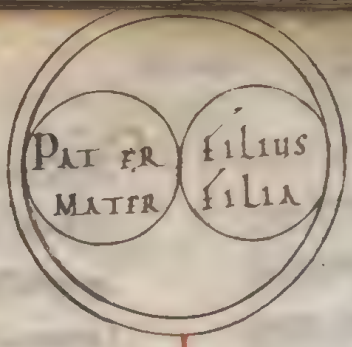 PATER
MATER
filius
filia